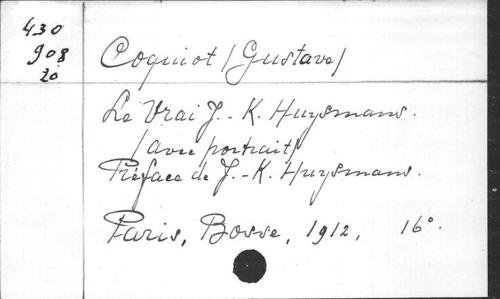 430
908
20
Coquiot (Gustave)
Le Vrai J.-K. Huysmans.
(avec portrait)
Préface de J.-K. Huysmans.
Paris, Bosse, 1912, 16°.